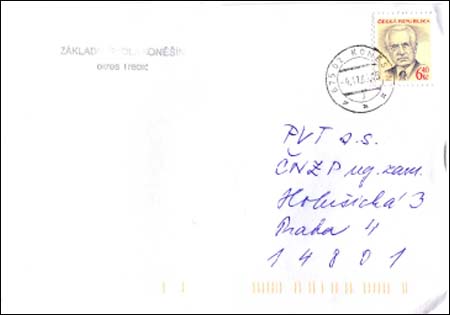 ZÁKLADNÍ ŠKOLA KONĚŠÍN
okres Třebíč
ČESKÁ REPUBLIKA
6,40
Kč
675 02 KONĚŠ
PVT a.s.
ČNZP reg. zam.
Holušická 3
Praha 4
14801